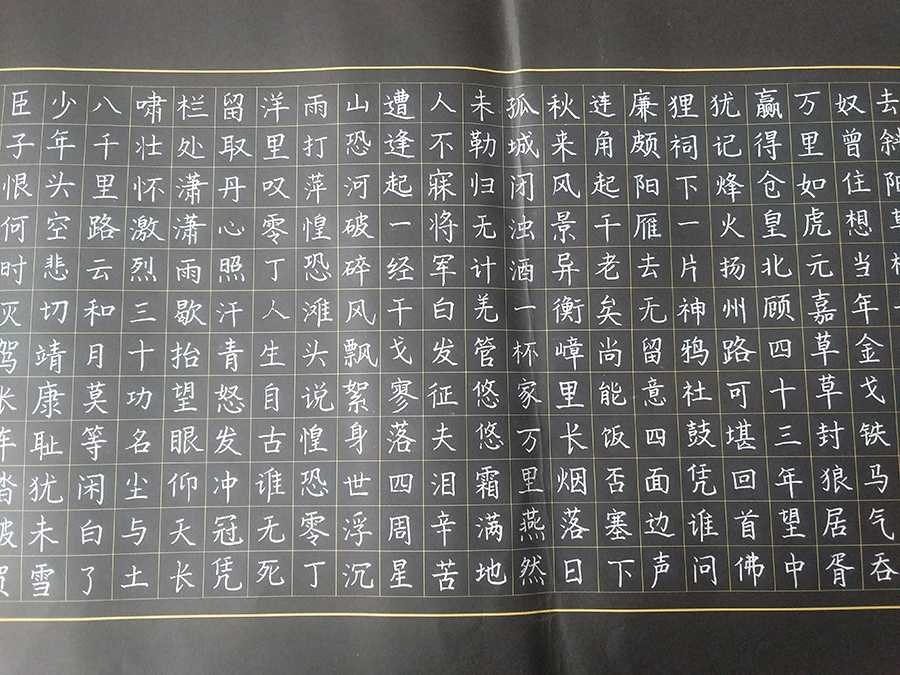 去斜阳草
奴曾住想当年金戈铁马气吞
万里如虎元嘉草草封狼居胥
赢得仓皇北顾四十三年望中
犹记烽火扬州路可堪回首佛
狸祠下一片神鸦社鼓凭谁问
廉颇阳雁去无留意四面边声
连角起千老矣尚能饭否塞下
秋来风景异衡嶂里长烟落日
孤城闭浊酒一杯家万里燕然
未勒归无计羌管悠悠霜满地
人不寐将军白发征夫泪辛苦
遭逢起一经干戈寥落四周星
山恐河破碎风飘絮身世浮沉
雨打萍惶恐滩头说惶恐零丁
洋里叹零丁人生自古谁无死
留取丹心照汗青怒发冲冠凭
栏处潇潇雨歇抬望眼仰天长
啸壮怀激烈三十功名尘与土
八千里路云和月莫等闲白了
少年头空悲切靖康耻犹未雪
臣子恨何时灭驾长车踏破贺